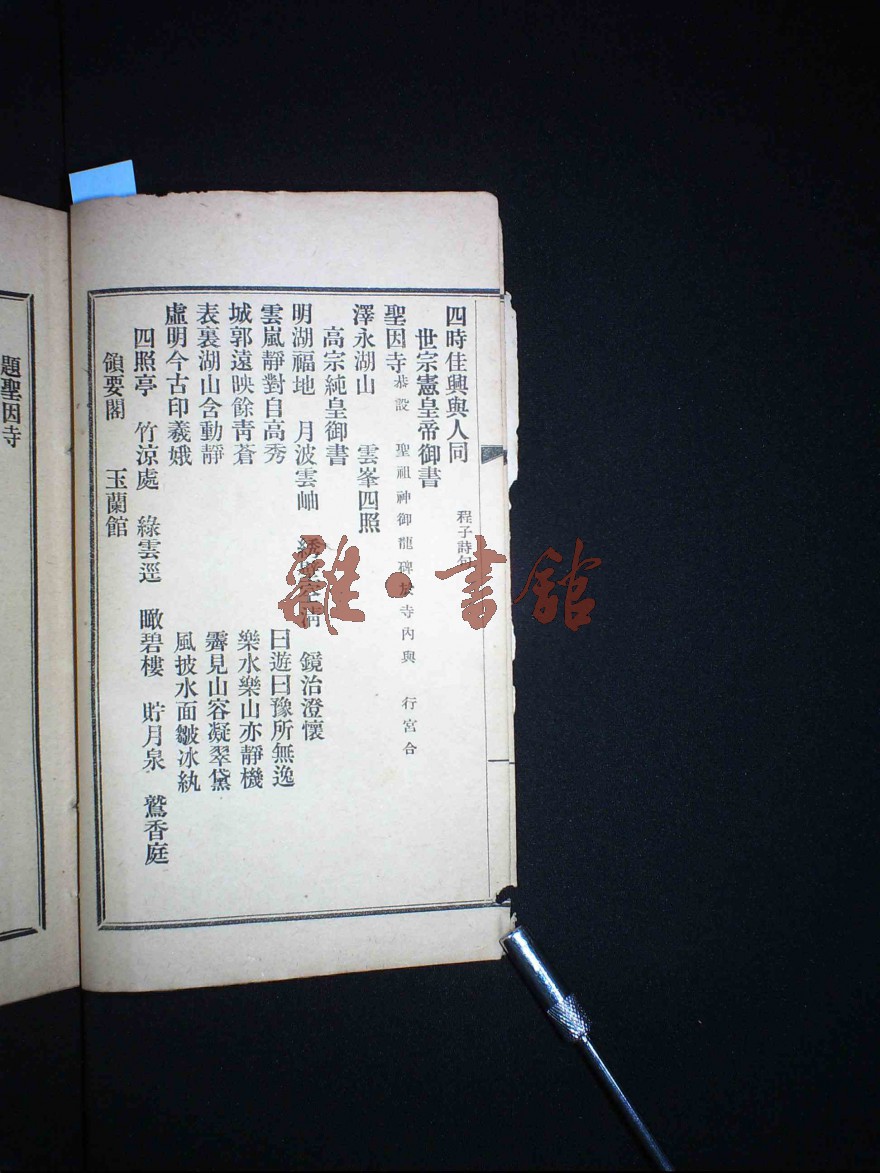 四時佳興與人同 程子詩句
世宗憲皇帝御書
聖因寺 恭設 聖祖神御龍碑於寺內與 行宮合
澤永湖山 雲峯四照
高宗純皇御書
明湖福地 月波雲岫 清 鏡治澄懷
雲嵐靜對自高秀 日遊日豫所無逸
城郭遠映餘靑蒼 樂水樂山亦靜機
表裏湖山含動靜 霽見山容凝翠黛
虛明今古印羲娥 風披水面皺冰紈
四照亭 竹涼處 綠雲逕 瞰碧樓 貯月泉 鷲香庭
領要閣 玉蘭館
題聖因寺
雜·書館